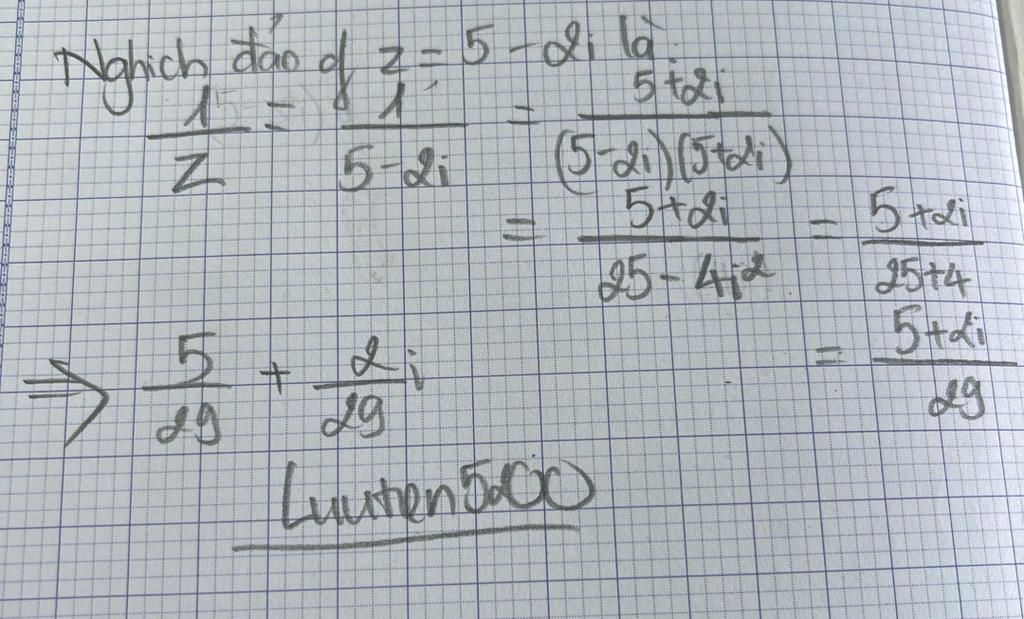 Nghịch đảo of z = 5 - 2i là:
1/z = 1/(5-2i) = (5+2i)/((5-2i)(5+2i))
= (5+2i)/(25-4i²) = (5+2i)/(25+4)
= (5+2i)/29
⇒ 5/29 + 2/29 i
Luuten5200